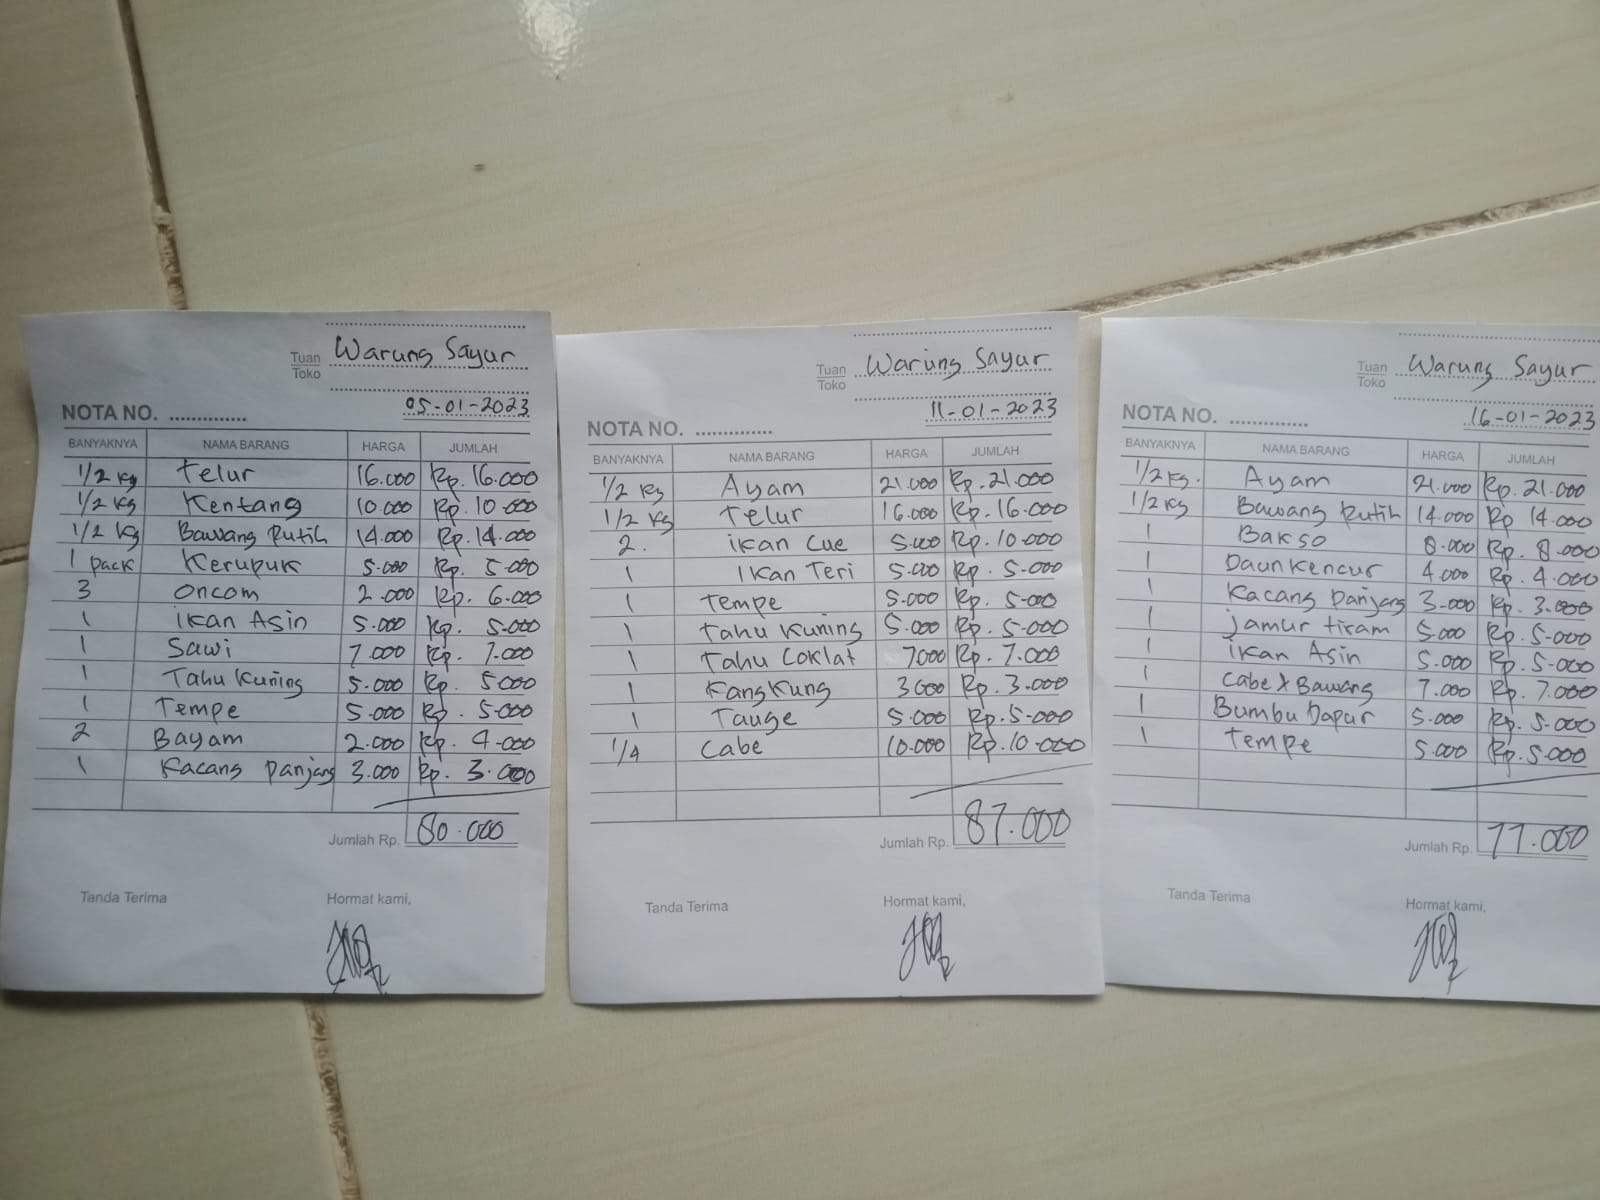 Tuan
Toko Warung Sayur
NOTA NO. .............. 05-01-2023
BANYAKNYA NAMA BARANG HARGA JUMLAH
1/2 kg Telur 16.000 Rp. 16.000
1/2 kg Kentang 10.000 Rp. 10.000
1/2 kg Bawang Putih 14.000 Rp. 14.000
1 pack Kerupuk 5.000 Rp. 5.000
3 Oncom 2.000 Rp. 6.000
1 ikan Asin 5.000 Rp. 5.000
1 Sawi 7.000 Rp. 7.000
1 Tahu Kuning 5.000 Rp. 5000
1 Tempe 5.000 Rp. 5.000
2 Bayam 2.000 Rp. 4.000
1 Kacang panjang 3.000 Rp. 3.000
Jumlah Rp. 80.000
Tanda Terima Hormat kami,
Tuan
Toko Warung Sayur
NOTA NO. .............. 11-01-2023
BANYAKNYA NAMA BARANG HARGA JUMLAH
1/2 kg Ayam 21.000 Rp. 21.000
1/2 kg Telur 16.000 Rp. 16.000
2. ikan Cue 5.000 Rp. 10.000
1 Ikan Teri 5.000 Rp. 5.000
1 Tempe 5.000 Rp. 5.000
1 Tahu Kuning 5.000 Rp. 5.000
1 Tahu Coklat 7000 Rp. 7.000
1 Kangkung 3000 Rp. 3.000
1 Tauge 5.000 Rp. 5.000
1/4 Cabe 10.000 Rp. 10.000
Jumlah Rp. 87.000
Tanda Terima Hormat kami,
Tuan
Toko Warung Sayur
NOTA NO. .............. 16-01-2023
BANYAKNYA NAMA BARANG HARGA JUMLAH
1/2 kg. Ayam 21.000 Rp. 21.000
1/2 kg Bawang Putih 14.000 Rp 14.000
1 Bakso 8.000 Rp. 8.000
1 Daun Kencur 4.000 Rp. 4.000
1 Kacang panjang 3.000 Rp. 3.000
1 jamur tiram 5.000 Rp. 5.000
1 ikan Asin 5.000 Rp. 5.000
1 Cabe x Bawang 7.000 Rp. 7.000
1 Bumbu Dapur 5.000 Rp. 5.000
1 Tempe 5.000 Rp. 5.000
Jumlah Rp. 77.000
Tanda Terima Hormat kami,